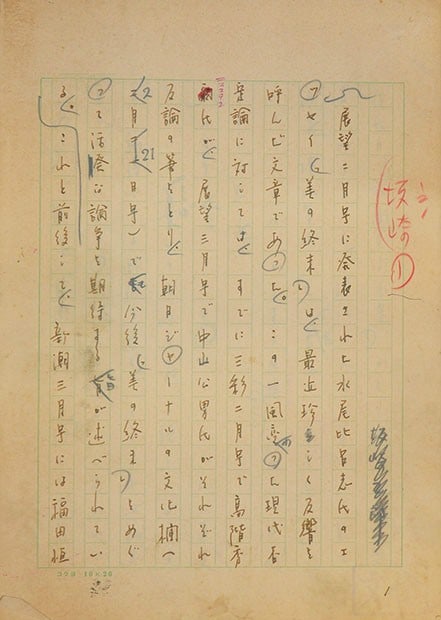 坂崎①
坂崎
展望二月号に発表された水尾比呂志氏のエ
ッセイ「美の終末」は、最近珍しく反響を
呼んだ文章であった。この一風変った現代否
定論に対しては、すでに三彩二月号で高階秀
爾氏が、展望三月号で中山公男氏がそれぞれ
反論の筆をとり、朝日ジャーナルの文化欄へ
(2月21日号)で今後「美の終末」をめぐ
って活発な論争を期待する旨が述べられてい
る。これと前後して、新潮三月号には福田恒
1
コクヨ 10×20